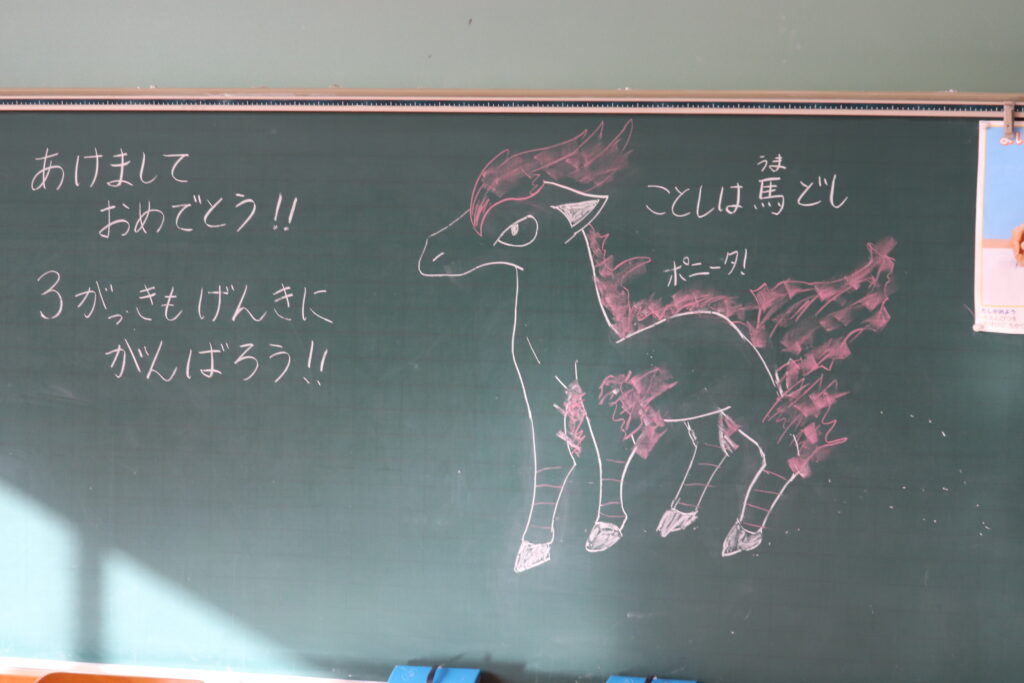 あけまして
おめでとう!!
3がっきもげんきに
がんばろう!!
うま
ことしは馬どし
ポニータ!